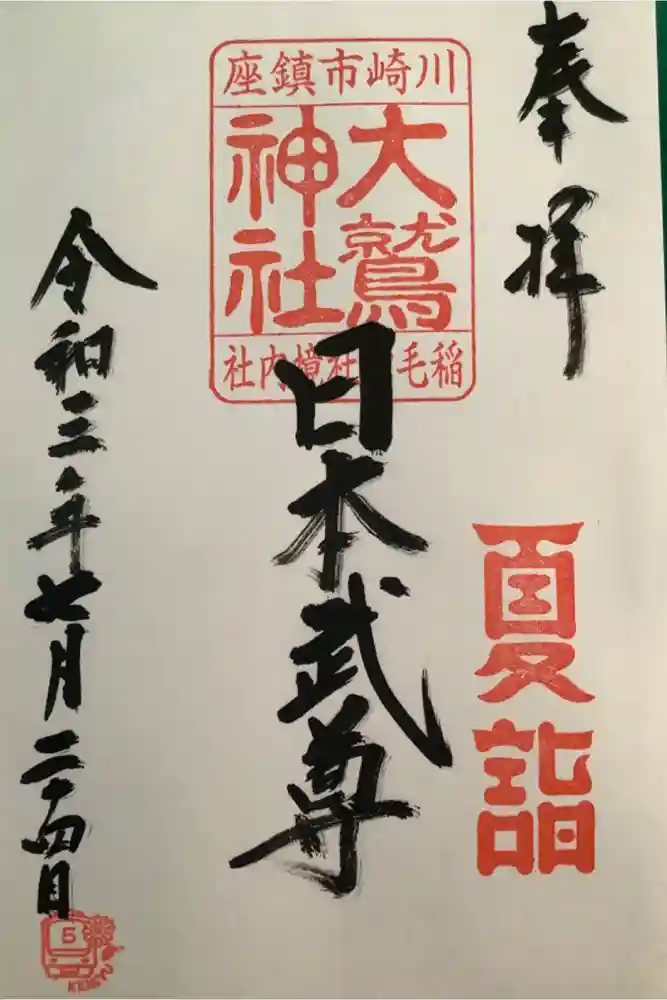 奉拝
川崎市鎮座
大鷲
神社
稲毛社境内社
日本武尊
夏詣
令和三年七月二十四日
5